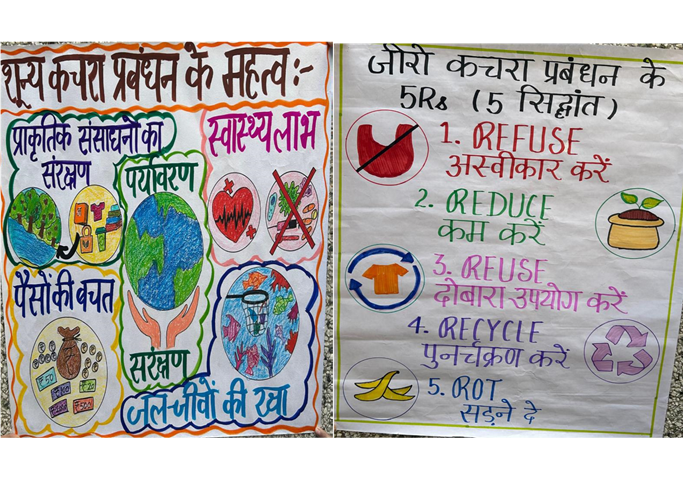 शून्य कचरा प्रबंधन के महत्व:-
प्राकृतिक संसाधनों का
संरक्षण
पर्यावरण
संरक्षण
स्वास्थ्य लाभ
पैसों की बचत
₹50
₹20
जल-जीवों की रक्षा
जीरो कचरा प्रबंधन के
5Rs (5 सिद्धांत)
1. REFUSE
अस्वीकार करें
2. REDUCE
कम करें
3. REUSE
दोबारा उपयोग करें
4. RECYCLE
पुनर्चक्रण करें
5. ROT
सड़ने दे